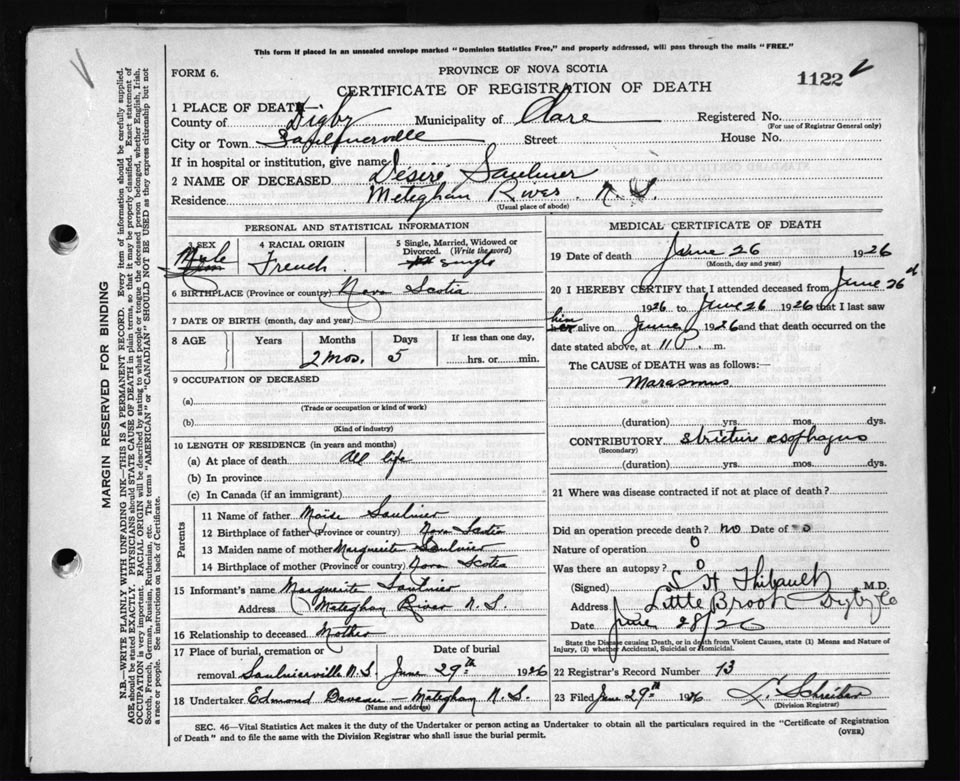 This form if placed in an unsealed envelope marked "Dominion Statistics Free," and properly addressed, will pass through the mails "FREE."
FORM 6.
PROVINCE OF NOVA SCOTIA
1122
CERTIFICATE OF REGISTRATION OF DEATH
1 PLACE OF DEATH—
County of Digby Municipality of Clare Registered No.
(For use of Registrar General only)
City or Town Street House No.
If in hospital or institution, give name
2 NAME OF DECEASED Desiré Saulnier
Residence Meteghan River N.S.
(Usual place of abode)
PERSONAL AND STATISTICAL INFORMATION
3 SEX Male
4 RACIAL ORIGIN French
5 Single, Married, Widowed or Divorced. (Write the word) single
6 BIRTHPLACE (Province or country) Nova Scotia
7 DATE OF BIRTH (month, day and year)
8 AGE Years Months Days If less than one day,
2 mos. 5 hrs. or min.
9 OCCUPATION OF DECEASED
(a)
(Trade or occupation or kind of work)
(b)
(Kind of industry)
10 LENGTH OF RESIDENCE (in years and months)
(a) At place of death All life
(b) In province
(c) In Canada (if an immigrant)
Parents
11 Name of father Moise Saulnier
12 Birthplace of father (Province or country) Nova Scotia
13 Maiden name of mother Marguerite Saulnier
14 Birthplace of mother (Province or country) Nova Scotia
15 Informant's name Marguerite Saulnier
Address Meteghan River N.S.
16 Relationship to deceased Mother
17 Place of burial, cremation or removal Date of burial
Saulnierville N.S. June 29th 1926
18 Undertaker Edmond Meteghan N.S.
(Name and address)
MEDICAL CERTIFICATE OF DEATH
19 Date of death June 26 1926
(Month, day and year)
20 I HEREBY CERTIFY that I attended deceased from June 26
1926 to June 26 1926 that I last saw
him
her alive on June 1926 and that death occurred on
date stated above, at 11 P. m.
The CAUSE of DEATH was as follows:—
Marasmus
(duration) yrs. mos. dys.
CONTRIBUTORY stricture esophagus
(Secondary)
(duration) yrs. mos. dys.
21 Where was disease contracted if not at place of death?
Did an operation precede death? no Date of o
Nature of operation O
Was there an autopsy? O
(Signed) L H Thibault M.D.
Address Little Brook Digby Co
Date June 28/26
State the Disease causing Death, or in death from Violent Causes, state (1) Means and Nature of Injury, (2) whether Accidental, Suicidal or Homicidal.
22 Registrar's Record Number 13
23 Filed June 29th 1926
(Division Registrar)
SEC. 46—Vital Statistics Act makes it the duty of the Undertaker or person acting as Undertaker to obtain all the particulars required in the "Certificate of Registration
of Death" and to file the same with the Division Registrar who shall issue the burial permit.
(OVER)
MARGIN RESERVED FOR BINDING
N.B.—WRITE PLAINLY WITH UNFADING INK—THIS IS A PERMANENT RECORD. Every item of information should be carefully supplied.
AGE should be stated EXACTLY. PHYSICIANS should STATE CAUSE OF DEATH in plain terms, so that it may be properly classified. Exact statement of
OCCUPATION is very important. RACIAL ORIGIN will be described by stating to what people or tongue the deceased person belonged, whether English, Irish,
Scotch, French, German, Russian, Ruthenian, etc. The terms "AMERICAN" or "CANADIAN" SHOULD NOT BE USED as they express citizenship but not
a race or people. See instructions on back of Certificate.